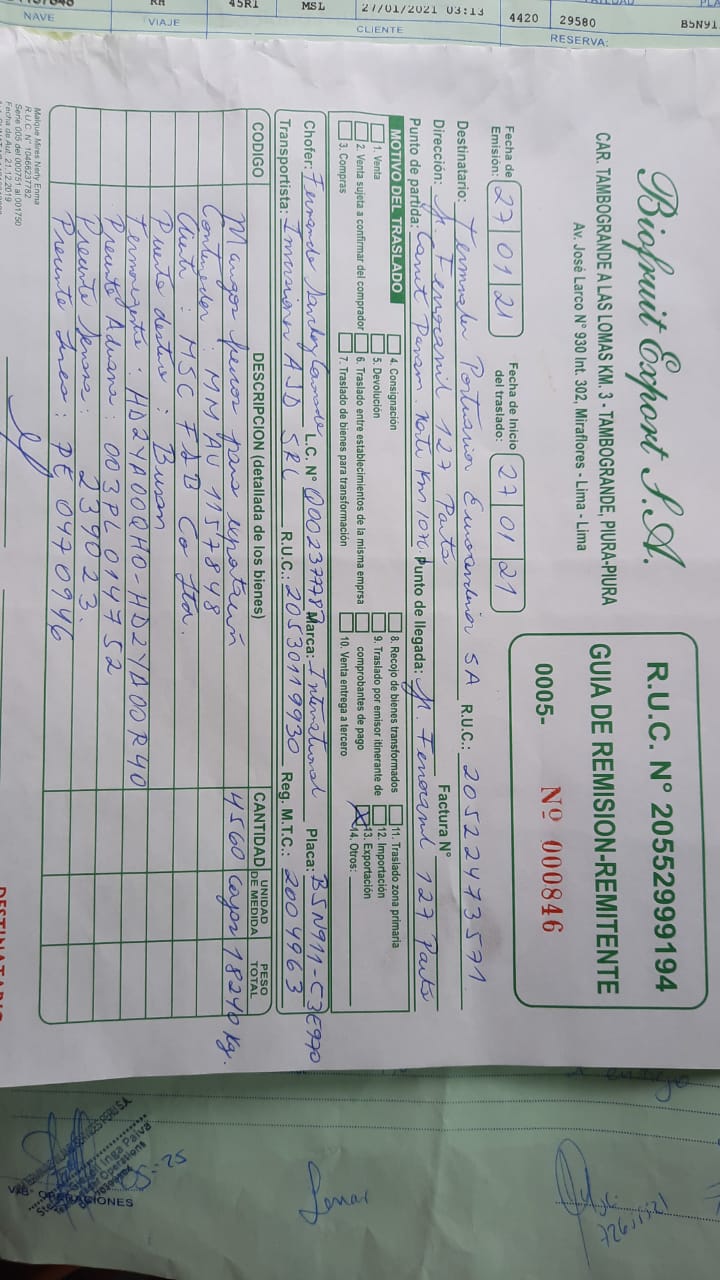 Biofruit Export S.A.
CAR. TAMBOGRANDE A LAS LOMAS KM. 3 - TAMBOGRANDE, PIURA-PIURA
Av. José Larco N° 930 Int. 302, Miraflores - Lima - Lima
R.U.C. N° 20552999194
GUIA DE REMISION-REMITENTE
0005- Nº 000846
Fecha de Emisión: 27 01 21
Fecha de Inicio del traslado: 27 01 21
Destinatario: Terminales Portuarios Euroandinos SA R.U.C.: 20522473571
Dirección: Jr. Ferrocarril 127 Paita Factura N°
Punto de partida: Carret Panam. Norte Km Punto de llegada: Jr. Ferrocarril 127 Paita
MOTIVO DEL TRASLADO
1. Venta
2. Venta sujeta a confirmar del comprador
3. Compras
4. Consignación
5. Devolución
6. Traslado entre establecimientos de la misma emprsa
7. Traslado de bienes para transformación
8. Recojo de bienes transformados
9. Traslado por emisor itinerante de comprobantes de pago
10. Venta entrega a tercero
11. Traslado zona primaria
12. Importación
X 13. Exportación
14. Otros:
Chofer: Fernando L.C. N° Q00237787 Marca: International Placa: B5N911-C3E970
Transportista: Inversiones AJD SRL R.U.C.: 20530119930 Reg. M.T.C.: 2004963
CODIGO DESCRIPCION (detallada de los bienes) CANTIDAD UNIDAD DE MEDIDA PESO TOTAL
Mangos frescos para exportación 4560 Cajas 18240 Kg.
Contenedor: MMAU 1157848
Cliente: MSC F&B Co Ltd.
Puerto destino: Busan
Termorregistro: HD2YA00QH0-HD2YA00R40
Precinto Aduana: 003PL014752
Precinto Senasa: 234023.
Precinto Linea: PE0470946
Malque Mires Nerly Enma
R.U.C. N° 10466237782
Serie 005 del 000751 al 001750
Fecha de Aut. 21.12.2019
NAVE
VIAJE
RH
45R1
MSL
27/01/2021 03:13
CLIENTE
4420
29580
RESERVA:
B5N91
OPERACIONES